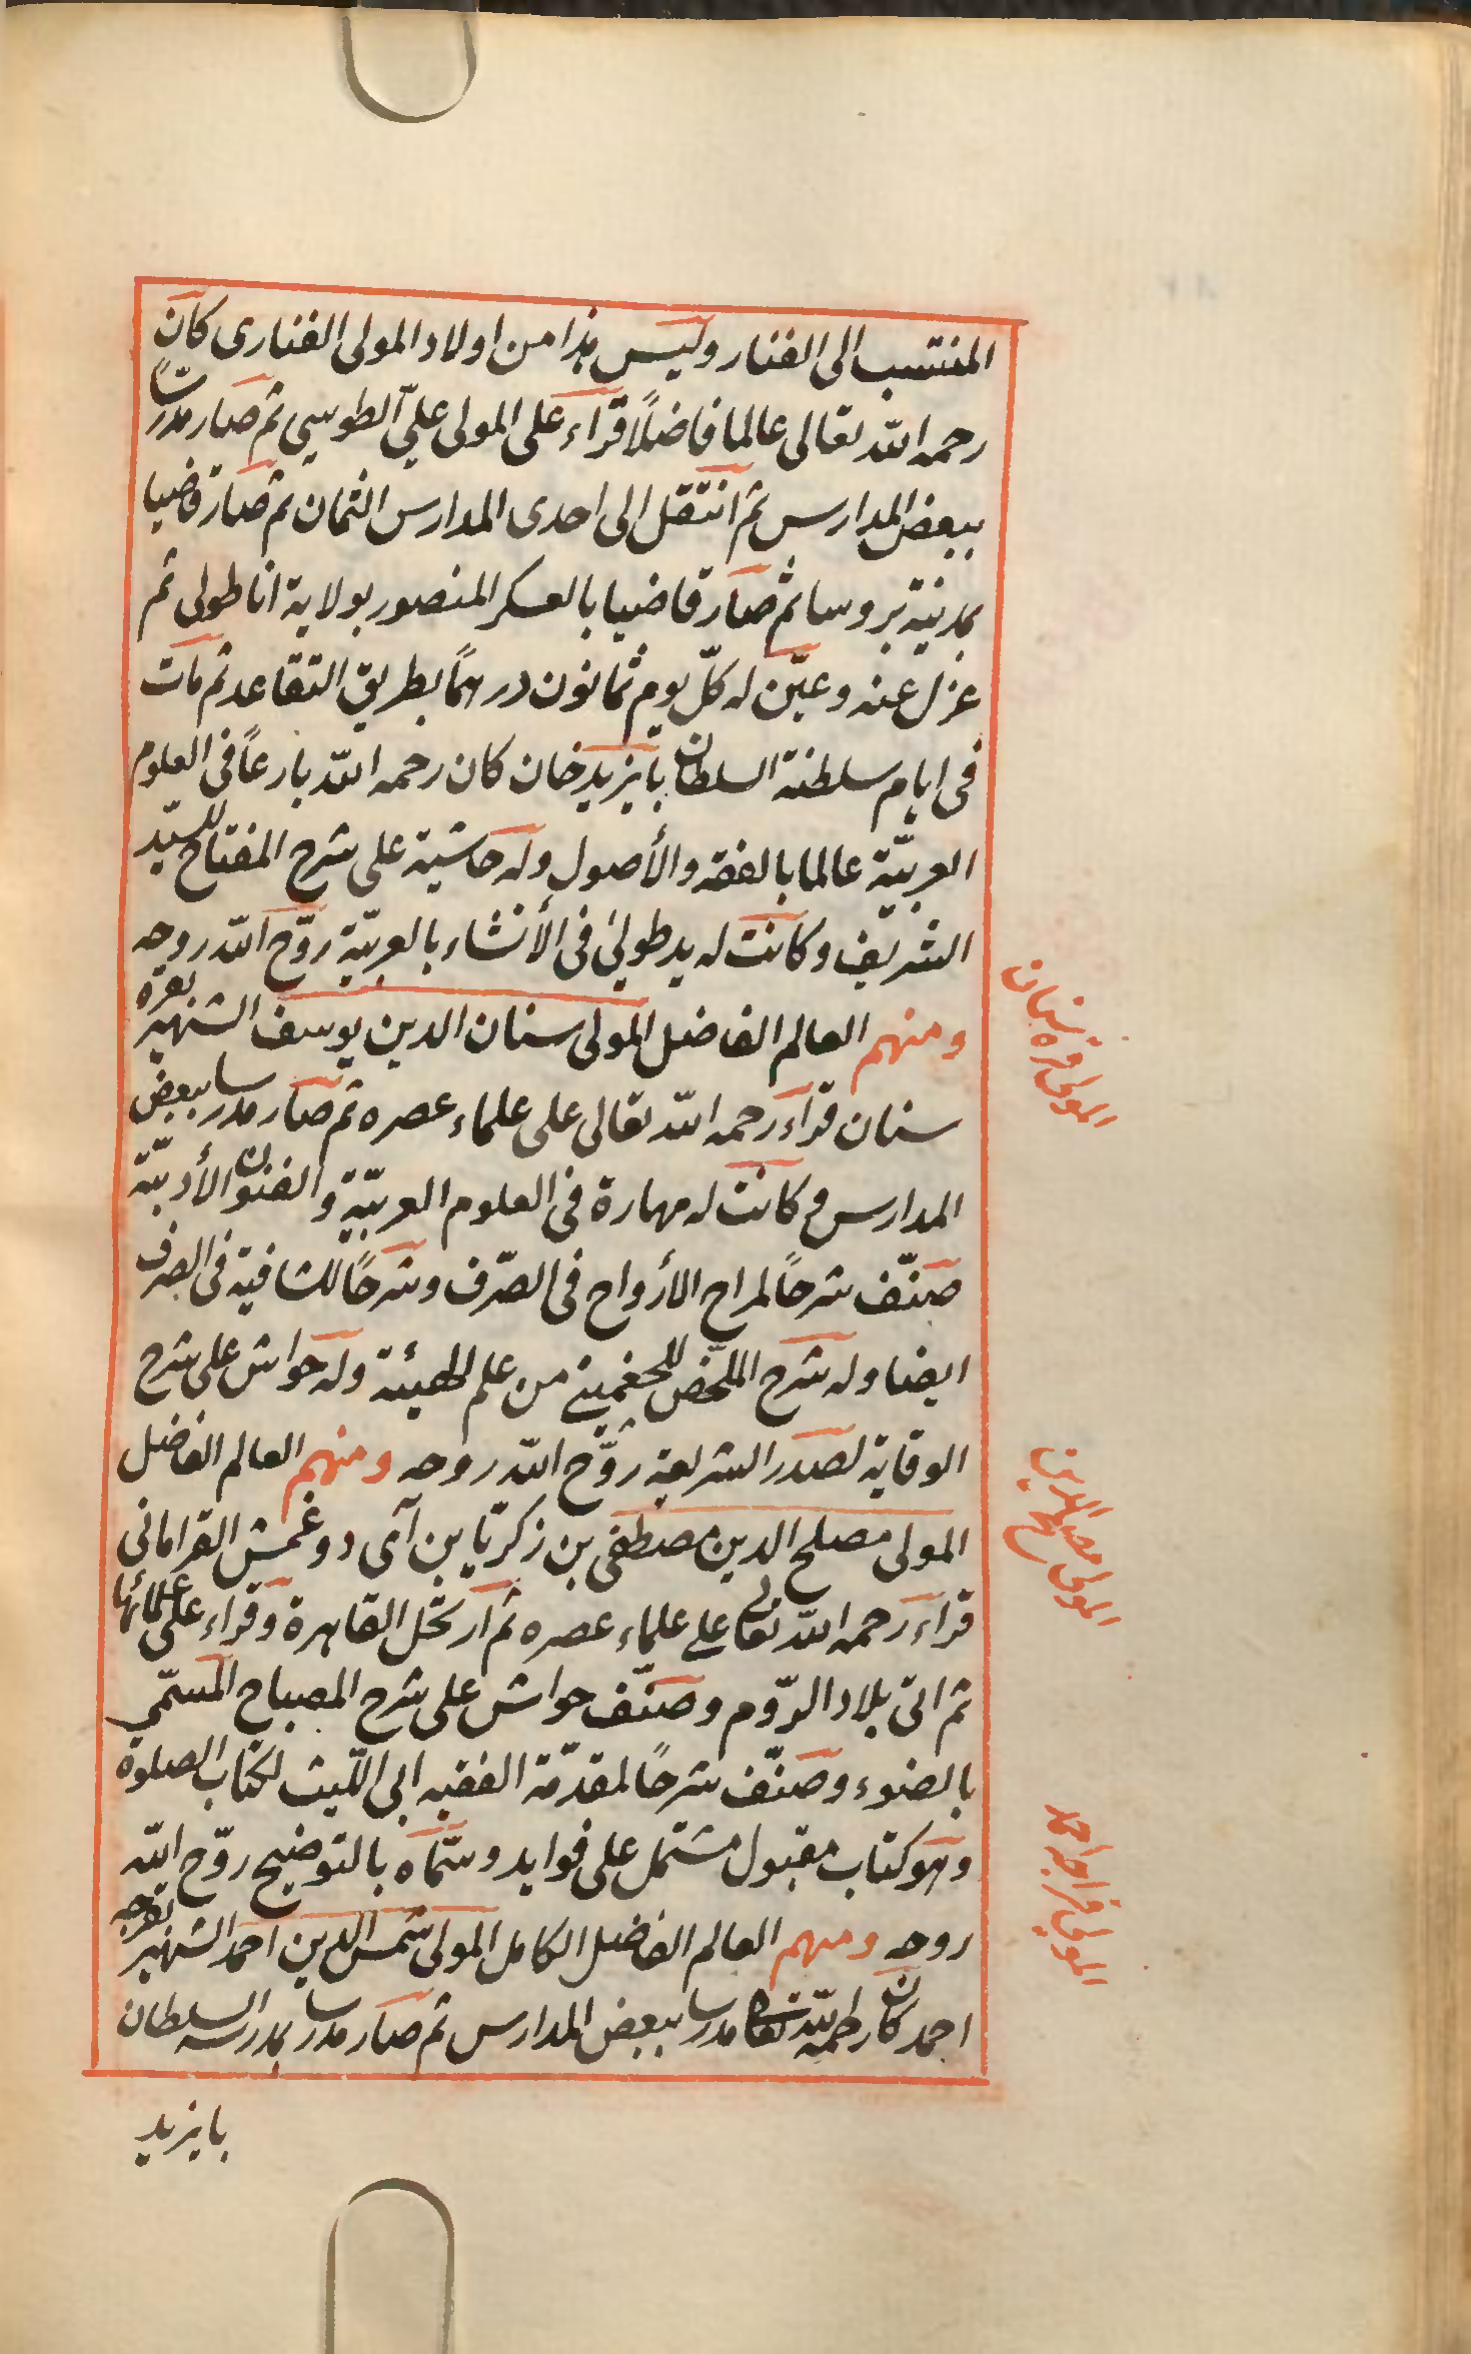 المنتسب الى الفنار وليس هذا من اولاد المولى الفنارى كان
رحمه الله تعالى عالما فاضلًا قراء على المولى علىّ الطوسى ثم صار مدرسًا
ببعض المدارس ثم انتقل الى احدى المدارس الثمان ثم صار قاضيا
بمدينة بروسا ثم صار قاضيا بالعسكر المنصور بولاية اناطولى ثم
عزل عنه وعيّن له كلّ يوم ثمانون درهمًا بطريق التقاعد ثم مات
فى ايام سلطنة السلطان بايزيد خان كان رحمه الله بارعًا فى العلوم
العربيّة عالما بالفقه والأصول وله حاشية على شرح المفتاح للسيّد
الشريف وكانت له يد طولىٰ فى الأنشاء بالعربيّة روّح الله روحه
ومنهم العالم الفاضل المولى سنان الدين يوسف الشهير بقره
سنان قراء رحمه الله تعالى على علماء عصره ثم صار مدرسا ببعض
المدارس و كانت له مهارة فى العلوم العربيّة والفنون الأدبيّة
صنّف شرحًا لمراح الأرواح فى الصّرف وشرحًا للشافية فى الصرف
ايضا وله شرح الملخّص للجغمينى من علم الهيئة وله حواش على شرح
الوقاية لصدر الشريعة روّح الله روحه ومنهم العالم الفاضل
المولى مصلح الدين مصطفى بن زكريّا بن آى دوغمش القرامانى
قراء رحمه الله تعالى على علماء عصره ثم ارتحل القاهرة وقراء على علمائها
ثم اتى بلاد الرّوم وصنّف حواش على شرح المصباح المسمّى
بالضوء وصنّف شرحًا لمقدّمة الفقيه ابى اللّيث لكتاب الصلوة
وهو كتاب مقبول مشتمل على فوايد وسمّاه بالتوضيح روّح الله
روحه ومنهم العالم الفاضل الكامل المولى شمس الدين احمد الشهير بقرجه
احمد كان رحمه الله تعالى مدرسا ببعض المدارس ثم صار مدرسا بمدرسة السلطان
بايزيد
المولى قره سنان
المولى مصلح الدين
المولى قراجه احمد